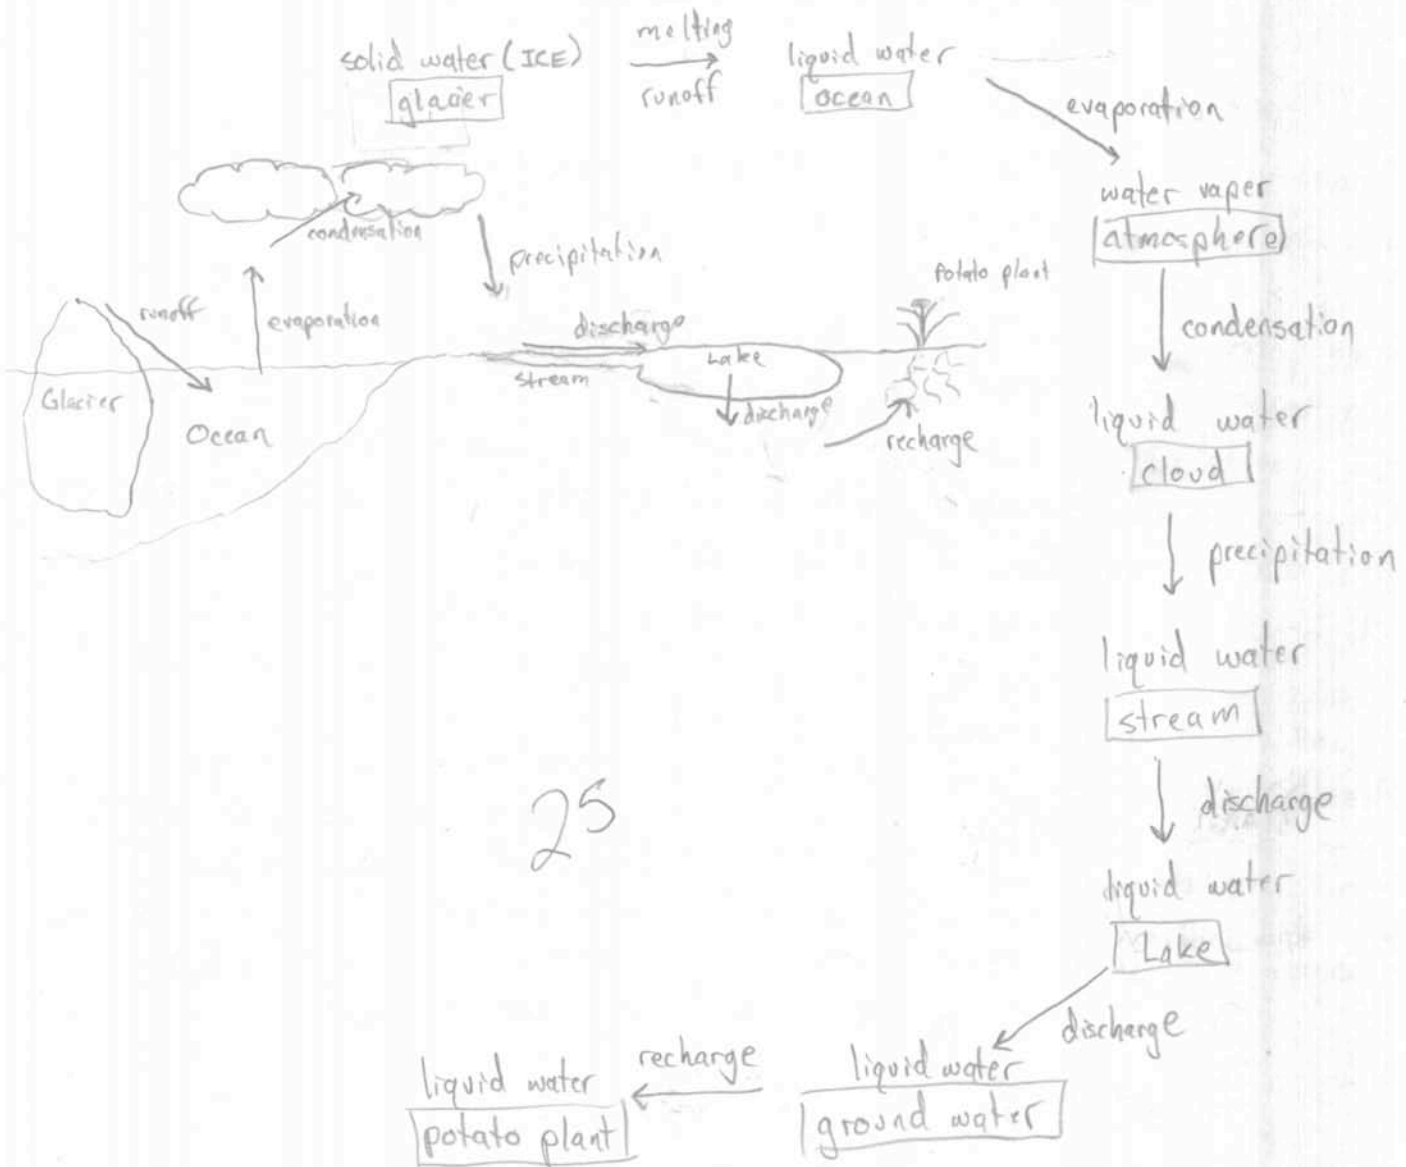 solid water (ICE)
glacier
melting
runoff
liquid water
ocean
evaporation
water vaper
atmosphere
condensation
liquid water
cloud
precipitation
liquid water
stream
discharge
liquid water
Lake
discharge
liquid water
ground water
recharge
liquid water
potato plant
condensation
precipitation
runoff
evaporation
Glacier
Ocean
discharge
stream
Lake
discharge
recharge
Potato plant
25